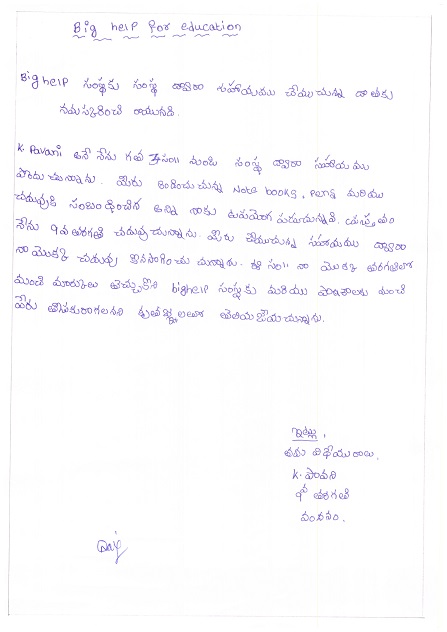 Big help for education
Big help సంస్థకు సంస్థ ద్వారా సహాయము చేయుచున్న దాతకు
నమస్కరించి రాయునది.
K. Pavani అనే నేను గత 7సం॥ నుండి సంస్థ ద్వారా సహాయము
పొందుచున్నాను. మీరు అందించుచున్న Note books, pens మరియు
చదువుకి సంబంధించిన అన్ని నాకు ఉపయోగ పడుచున్నవి. ప్రస్తుతం
నేను 9వ తరగతి చదువుచున్నాను. మీరు చేయుచున్న సహాయము ద్వారా
నా యొక్క చదువు కొనసాగించు చున్నాను. ఈ సం॥ నా యొక్క తరగతిలో
మంచి మార్కులు తెచ్చుకొని bighelp సంస్థకు మరియు పాఠశాలకు మంచి
పేరు తీసుకురాగలనని కృతజ్ఞతలతో తెలియజేయుచున్నాను.
ఇట్లు,
తమ విధేయురాలు.
K. పావని
9వ తరగతి